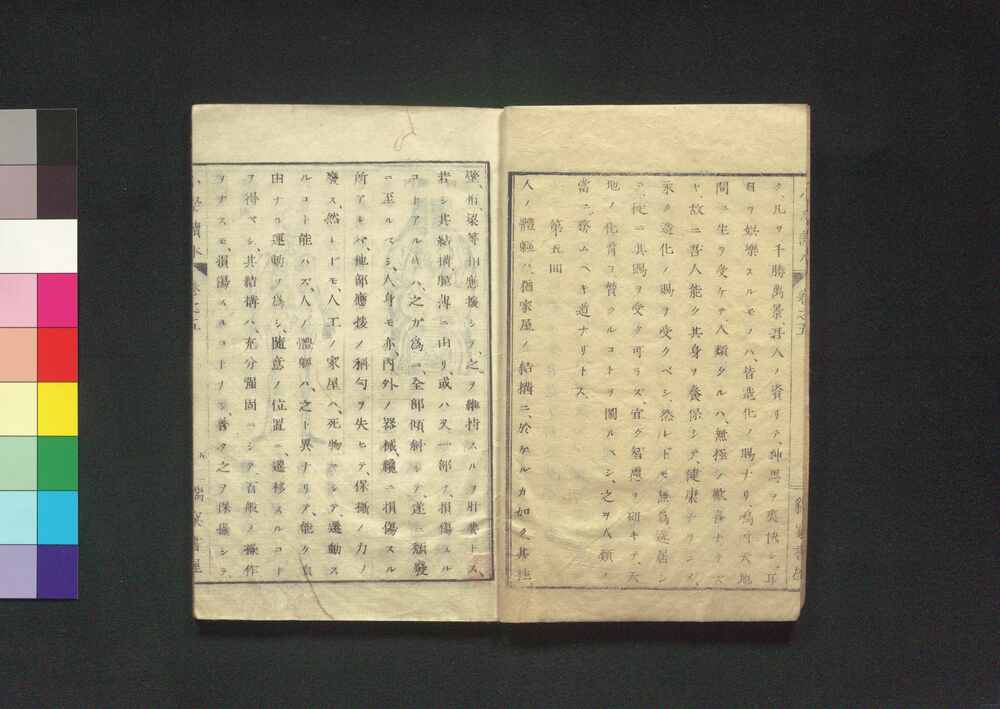 ク凡ソ千勝萬景、吾人ノ資リテ、神思ヲ爽快シ、耳
目ヲ娯樂スルモノハ、皆造化ノ賜ナリ、爲ニ天地
間ニ生ヲ受ケテ、人類タルハ、無極ノ歡喜ナラス
ヤ、故ニ吾人能ク其身ヲ養保シテ、健康ナラシメ、
永ク造化ノ賜ヲ受クベシ、然レドモ無爲逐居シ
テ、徒ニ其賜ヲ受ク可ラズ、宜ク智慮ヲ研キテ、天
地ノ化育ヲ贊クルコトヲ圖ルベシ、之ヲ人類ノ
當ニ務ムヘキ道ナリトス
第五回
人ノ體軀ハ、猶家屋ノ結搆ニ、於ケルカ如ク、其柱、
壁、桁、梁等相應援シテ、之ヲ維持スルヲ肝要トス、
若シ其結搆脆薄ニ由リ、或ハ又一部ノ損傷スル
コトアルトハ、之ガ爲ニ、全部傾斜シテ、遂ニ頽廢
ニ至ルベシ、人身モ亦内外ノ器械、纔ニ損傷スル
所アルトハ、他部應援ノ稱勻ヲ失ヒテ、保攝ノ力ノ
廢ス、然レドモ、人工ノ家屋ハ、死物ニシテ、運動ス
ルコト能ハズ、人ノ體軀ハ、之ト異ナリテ、能ク自
由ナル運動ヲ爲シ、隨意ノ位置ニ、遷移スルコト
ヲ得ベシ、其結搆ハ、充分强固ニシテ、百般ノ操作
ヲナスモ、損傷スルコトナシ、善ク之ヲ保養シテ、
卷之五
五